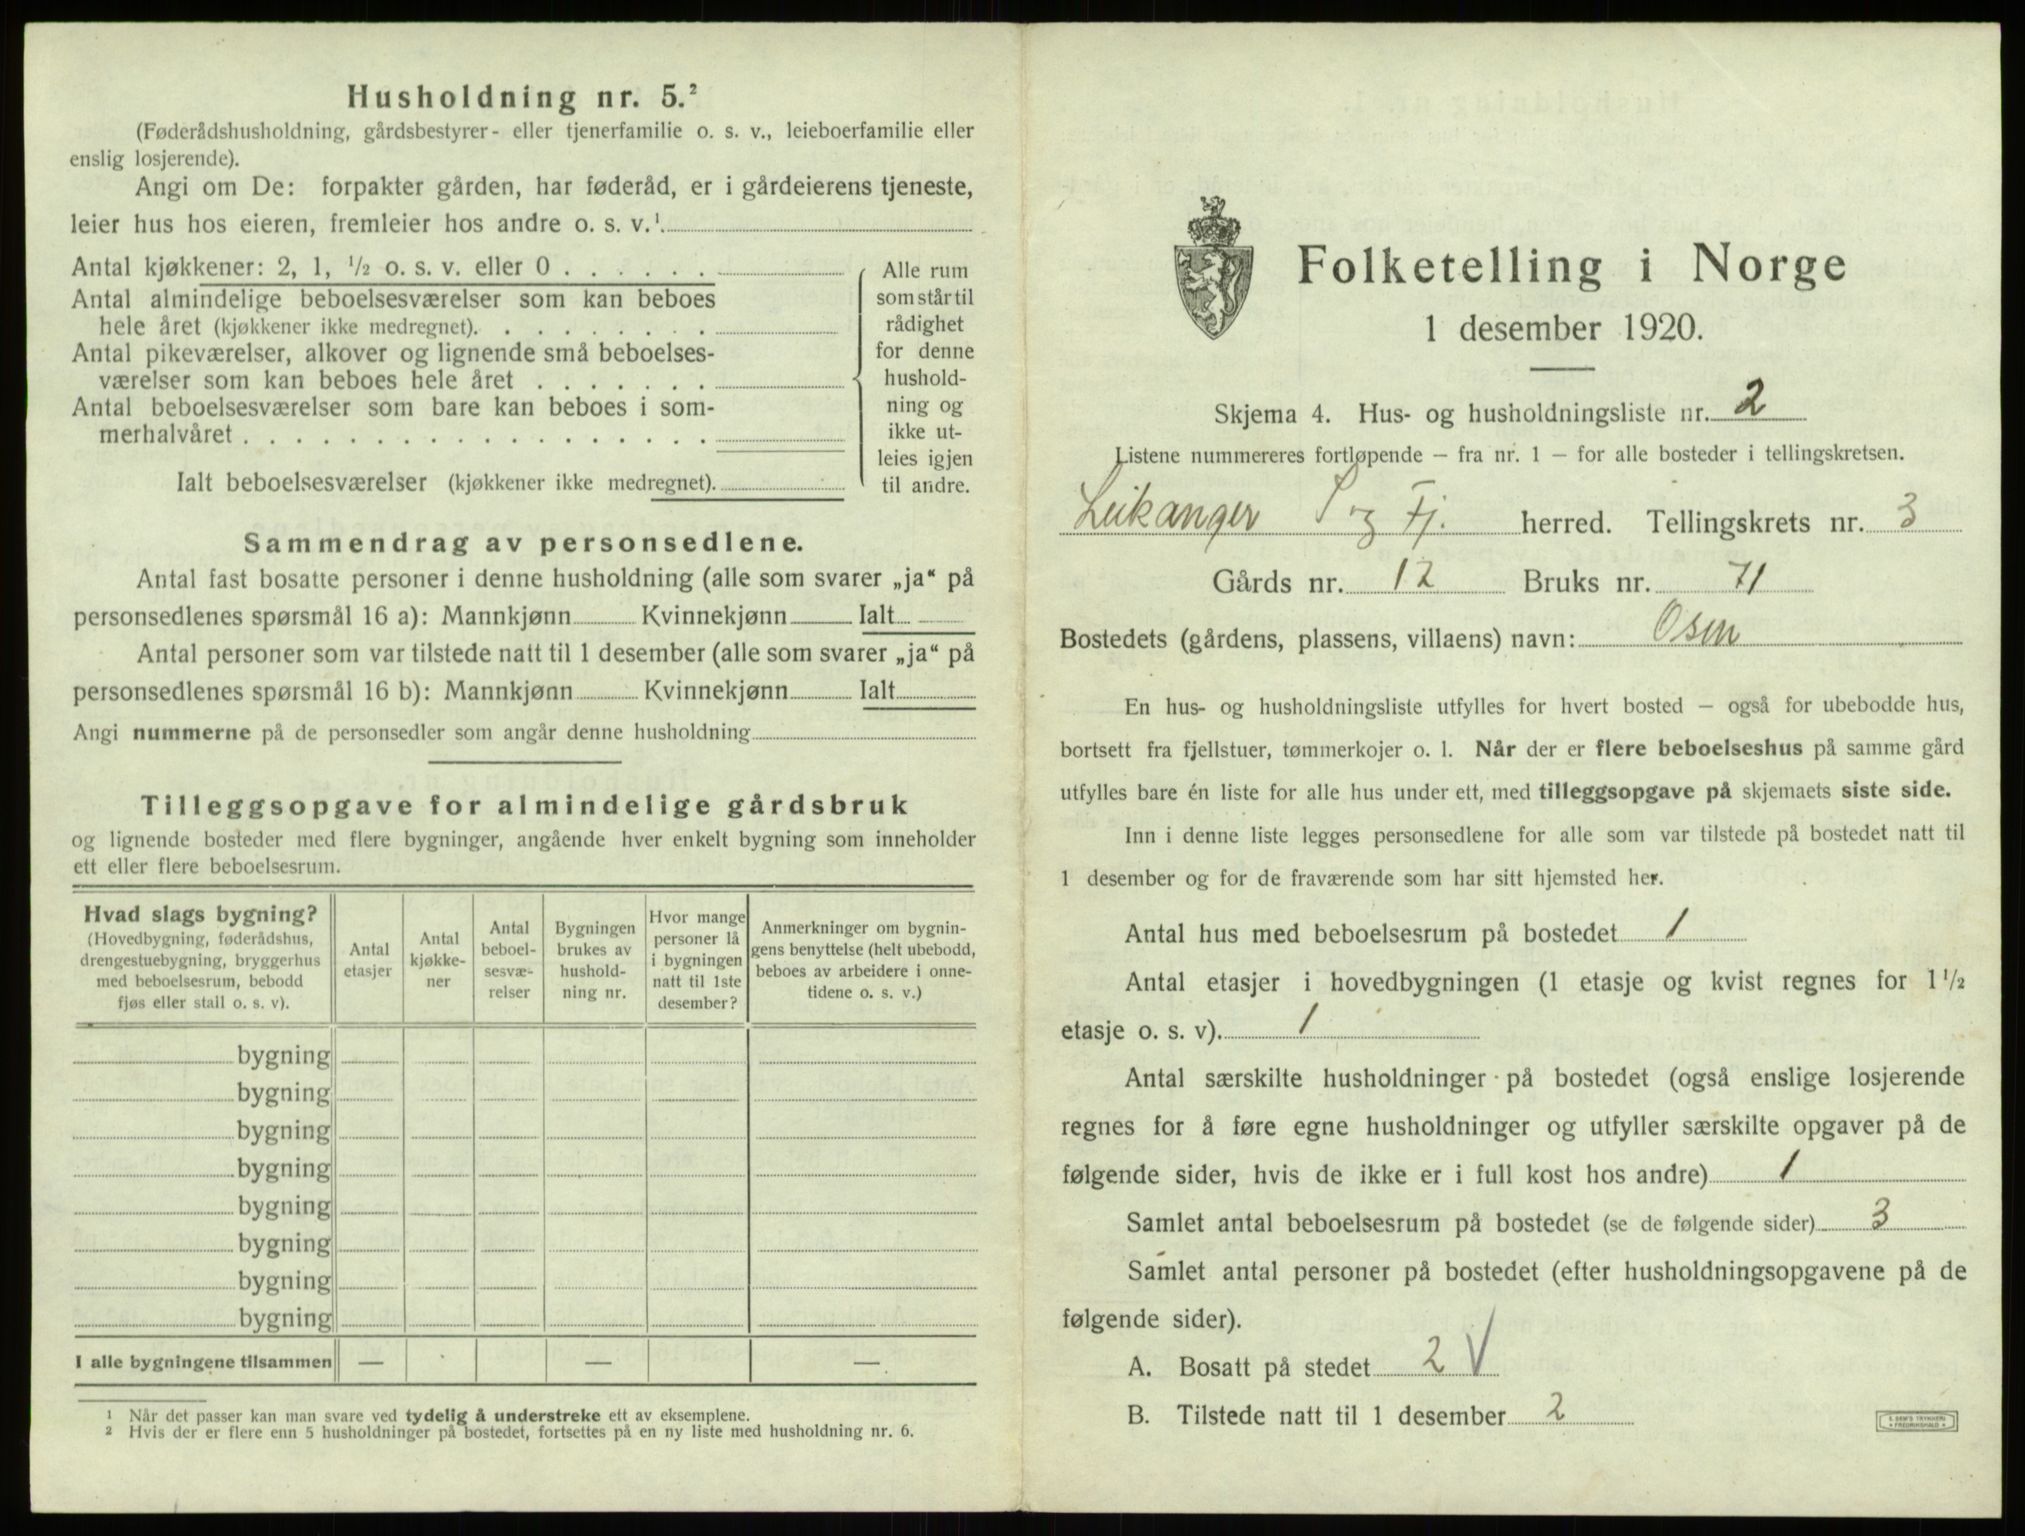 Husholdning nr. 5.²
(Føderådshusholdning, gårdsbestyrer- eller tjenerfamilie o. s. v., leieboerfamilie eller
enslig losjerende).
Angi om De: forpakter gården, har føderåd, er i gårdeierens tjeneste,
leier hus hos eieren, fremleier hos andre o. s. v.¹
Antal kjøkkener: 2, 1, ½ o. s. v. eller 0 . . . . . .
Antal almindelige beboelsesværelser som kan beboes
hele året (kjøkkener ikke medregnet). . . . . . . . .
Antal pikeværelser, alkover og lignende små beboelses-
værelser som kan beboes hele året . . . . . . .
Antal beboelsesværelser som bare kan beboes i som-
merhalvåret . . . . . . . . . . . . . . . . . .
Ialt beboelsesværelser (kjøkkener ikke medregnet).
Alle rum
som står til
rådighet
for denne
hushold-
ning og
ikke ut-
leies igjen
til andre.
Sammendrag av personsedlene.
Antal fast bosatte personer i denne husholdning (alle som svarer „ja“ på
personsedlenes spørsmål 16 a): Mannkjønn Kvinnekjønn Ialt
Antal personer som var tilstede natt til 1 desember (alle som svarer „ja“ på
personsedlenes spørsmål 16 b): Mannkjønn Kvinnekjønn Ialt
Angi nummerne på de personsedler som angår denne husholdning
Tilleggsopgave for almindelige gårdsbruk
og lignende bosteder med flere bygninger, angående hver enkelt bygning som inneholder
ett eller flere beboelsesrum.
Hvad slags bygning?
(Hovedbygning, føderådshus,
drengestuebygning, bryggerhus
med beboelsesrum, bebodd
fjøs eller stall o. s. v).
Antal
etasjer
Antal
kjøkke-
ner
Antal
beboel-
sesvæ-
relser
Bygningen
brukes av
hushold-
ning nr.
Hvor mange
personer lå
i bygningen
natt til 1ste
desember?
Anmerkninger om bygnin-
gens benyttelse (helt ubebodd,
beboes av arbeidere i onne-
tidene o. s. v.)
bygning
bygning
bygning
bygning
bygning
bygning
bygning
bygning
I alle bygningene tilsammen — — —
¹ Når det passer kan man svare ved tydelig å understreke ett av eksemplene.
² Hvis der er flere enn 5 husholdninger på bostedet, fortsettes på en ny liste med husholdning nr. 6.
Folketelling i Norge
1 desember 1920.
Skjema 4. Hus- og husholdningsliste nr. 2
Listene nummereres fortløpende – fra nr. 1 – for alle bosteder i tellingskretsen.
Leikanger S og Fj. herred. Tellingskrets nr. 3
Gårds nr. 12 Bruks nr. 71
Bostedets (gårdens, plassens, villaens) navn: Osen
En hus- og husholdningsliste utfylles for hvert bosted – også for ubebodde hus,
bortsett fra fjellstuer, tømmerkojer o. l. Når der er flere beboelseshus på samme gård
utfylles bare én liste for alle hus under ett, med tilleggsopgave på skjemaets siste side.
Inn i denne liste legges personsedlene for alle som var tilstede på bostedet natt til
1 desember og for de fraværende som har sitt hjemsted her.
Antal hus med beboelsesrum på bostedet 1
Antal etasjer i hovedbygningen (1 etasje og kvist regnes for 1½
etasje o. s. v). 1
Antal særskilte husholdninger på bostedet (også enslige losjerende
regnes for å føre egne husholdninger og utfyller særskilte opgaver på de
følgende sider, hvis de ikke er i full kost hos andre) 1
Samlet antal beboelsesrum på bostedet (se de følgende sider) 3
Samlet antal personer på bostedet (efter husholdningsopgavene på de
følgende sider).
A. Bosatt på stedet 2 V
B. Tilstede natt til 1 desember 2